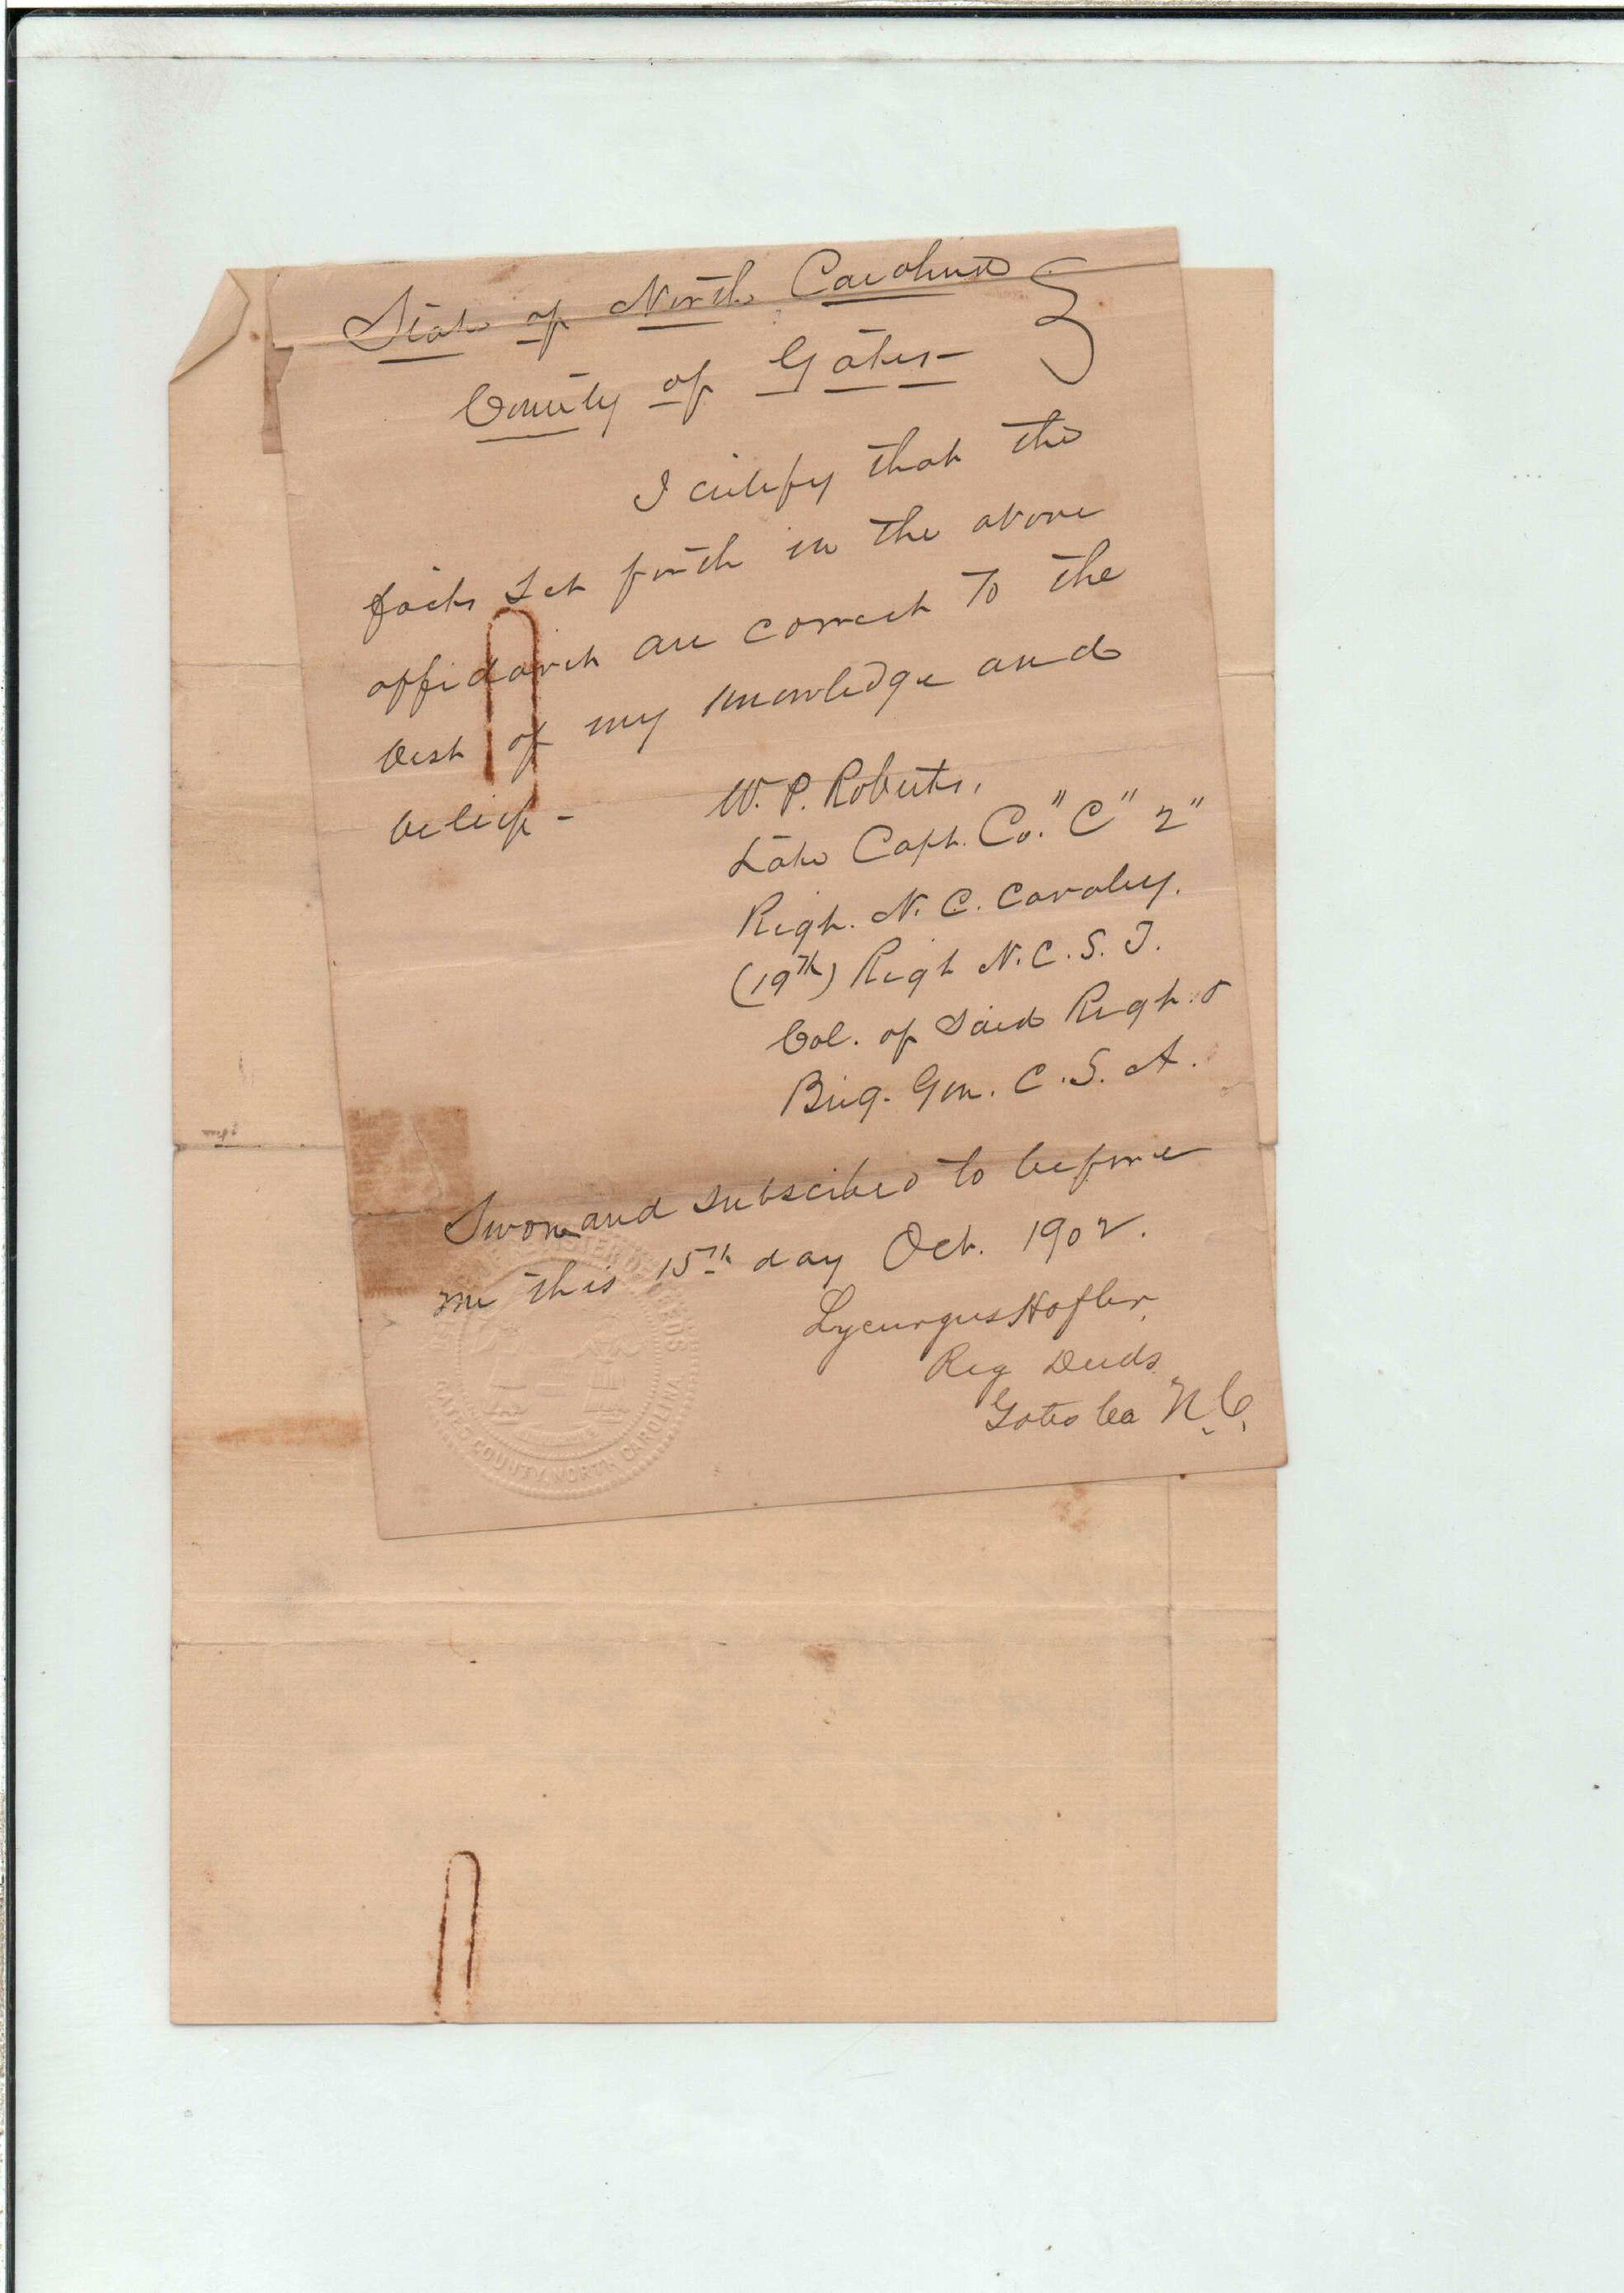 State of North Carolina
County of Gates-
I certify that the
facts set forth in the above
affidavit are correct to the
best of my knowledge and
belief-
W. P. Roberts,
Late Capt. Co. "C" 2"
Regt. N. C. Cavalry.
(19th) Regt N. C. S. T.
Col. of Said Regt. &
Brig. Gen. C. S. A.
Sworn and subscribed to before
me this 15th day Oct. 1902.
Lycurgus Hofler,
Reg Deeds
Gates Co N. C.
REGISTER OF DEEDS
GATES COUNTY, NORTH CAROLINA